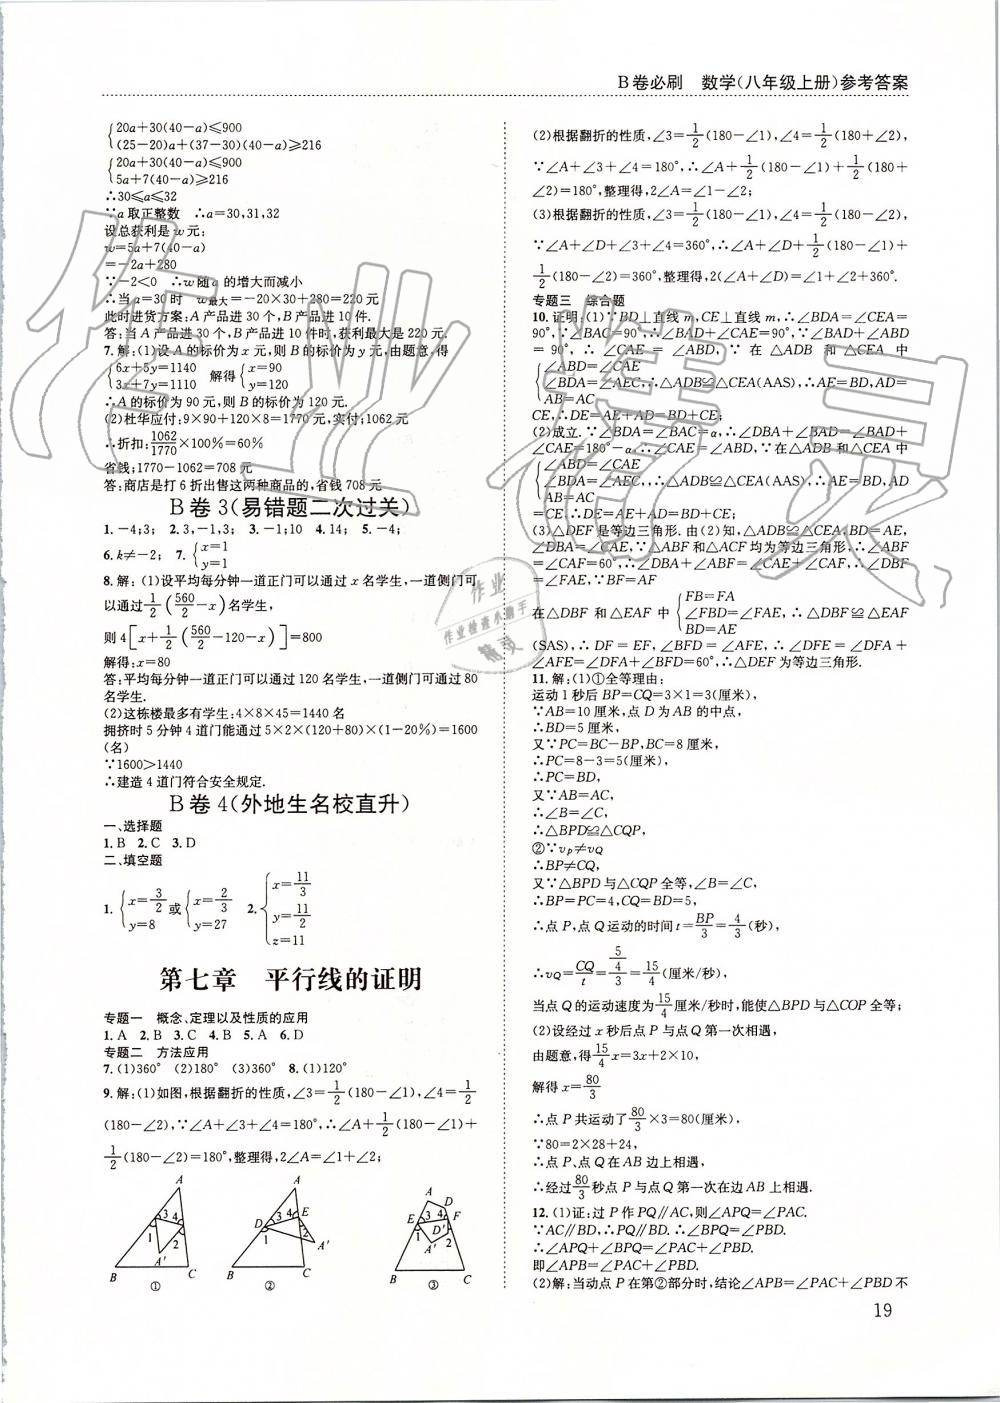 B卷必刷 数学(八年级上册)参考答案
{20a+30(40-a)⩽900
(25-20)a+(37-30)(40-a)⩾216
{20a+30(40-a)⩽900
5a+7(40-a)⩾216
∴30⩽a⩽32
∵a取正整数 ∴a=30,31,32
设总获利是w元:
w=5a+7(40-a)
=-2a+280
∵-2<0 ∴w随a的增大而减小
∴当a=30时 w最大=-20×30+280=220元
此时进货方案:A产品进30个,B产品进10件.
答:当A产品进30个,B产品进10件时,获利最大是220元.
7.解:(1)设A的标价为x元,则B的标价为y元,由题意,得
{6x+5y=1140 3x+7y=1110 解得{x=90 y=120
∴A的标价为90元,则B的标价为120元.
(2)杜华应付:9×90+120×8=1770元,实付:1062元
∴折扣:1062/1770×100%=60%
省钱:1770-1062=708元
答:商店是打6折出售这两种商品的,省钱708元
B卷3(易错题二次过关)
1.-4;3; 2.3,-1,3; 3.-1;10 4.14; 5.-4;
6.k≠-2; 7.{x=1 y=1
8.解:(1)设平均每分钟一道正门可以通过x名学生,一道侧门可
以通过1/2(560/2-x)名学生,
则4[x+1/2(560/2-120-x)]=800
解得:x=80
答:平均每分钟一道正门可以通过120名学生,一道侧门可通过80
名学生.
(2)这栋楼最多有学生:4×8×45=1440名
拥挤时5分钟4道门能通过5×2×(120+80)×(1-20%)=1600
(名)
∵1600>1440
∴建造4道门符合安全规定.
B卷4(外地生名校直升)
一、选择题
1.B 2.C 3.D
二、填空题
1.{x=3/2 y=8 或{x=2/3 y=27 2.{x=11/3 y=11/2 z=11
第七章 平行线的证明
专题一 概念、定理以及性质的应用
1.A 2.B 3.C 4.B 5.A 6.D
专题二 方法应用
7.(1)360° (2)180° (3)360° 8.(1)120°
9.解:(1)如图,根据翻折的性质,∠3=1/2(180-∠1),∠4=1/2
(180-∠2),∵∠A+∠3+∠4=180°,∴∠A+1/2(180-∠1)+
1/2(180-∠2)=180°,整理得,2∠A=∠1+∠2;
A 3 4 1 2 A' B C ①
A D 3 4 E 1 2 A' B C ②
A D E 3 4 F D' 1 2 A' B C ③
(2)根据翻折的性质,∠3=1/2(180-∠1),∠4=1/2(180+∠2),
∵∠A+∠3+∠4=180°,∴∠A+1/2(180-∠1)+1/2(180+
∠2)=180°,整理得,2∠A=∠1-∠2;
(3)根据翻折的性质,∠3=1/2(180-∠1),∠4=1/2(180-∠2),
∵∠A+∠D+∠3+∠4=360°,∴∠A+∠D+1/2(180-∠1)+
1/2(180-∠2)=360°,整理得,2(∠A+∠D)=∠1+∠2+360°.
专题三 综合题
10.证明:(1)∵BD⊥直线m,CE⊥直线m,∴∠BDA=∠CEA=
90°,∵∠BAC=90°,∴∠BAD+∠CAE=90°,∵∠BAD+∠ABD
=90°,∴∠CAE=∠ABD,∵在△ADB和△CEA中
{∠ABD=∠CAE
∠BDA=∠AEC,∴△ADB≌△CEA(AAS),∴AE=BD,AD=
AB=AC
CE,∴DE=AE+AD=BD+CE;
(2)成立.∵∠BDA=∠BAC=α,∴∠DBA+∠BAD=∠BAD+
∠CAE=180°-α,∴∠CAE=∠ABD,∵在△ADB和△CEA中
{∠ABD=∠CAE
∠BDA=∠AEC,∴△ADB≌△CEA(AAS),∴AE=BD,AD=
AB=AC
CE,∴DE=AE+AD=BD+CE;
(3)△DEF是等边三角形.由(2)知,△ADB≌△CEA,BD=AE,
∠DBA=∠CAE,∵△ABF和△ACF均为等边三角形,∴∠ABF
=∠CAF=60°,∴∠DBA+∠ABF=∠CAE+∠CAF,∴∠DBF
=∠FAE,∵BF=AF
在△DBF和△EAF中{FB=FA ∠FBD=∠FAE,∴△DBF≌△EAF BD=AE
(SAS),∴DF=EF,∠BFD=∠AFE,∴∠DFE=∠DFA+
∠AFE=∠DFA+∠BFD=60°,∴△DEF为等边三角形.
11.解:(1)①全等理由:
运动1秒后BP=CQ=3×1=3(厘米),
∵AB=10厘米,点D为AB的中点,
∴BD=5厘米,
又∵PC=BC-BP,BC=8厘米,
∴PC=8-3=5(厘米),
∴PC=BD,
又∵AB=AC,
∴∠B=∠C,
∴△BPD≌△CQP,
②∵vP≠vQ
∴BP≠CQ,
又∵△BPD与△CQP全等,∠B=∠C,
∴BP=PC=4,CQ=BD=5,
∴点P,点Q运动的时间t=BP/3=4/3(秒),
∴vQ=CQ/t=5/(4/3)=15/4(厘米/秒),
当点Q的运动速度为15/4厘米/秒时,能使△BPD与△CQP全等;
(2)设经过x秒后点P与点Q第一次相遇,
由题意,得15/4x=3x+2×10,
解得x=80/3
∴点P共运动了80/3×3=80(厘米)
∵80=2×28+24,
∴点P、点Q在AB边上相遇,
∴经过80/3秒点P与点Q第一次在边AB上相遇.
12.(1)证:过P作PQ∥AC,则∠APQ=∠PAC.
∵AC∥BD,∴PQ∥BD.∴∠BPQ=∠PBD.
∴∠APQ+∠BPQ=∠PAC+∠PBD.
即∠APB=∠PAC+∠PBD.
(2)解:当动点P在第②部分时,结论∠APB=∠PAC+∠PBD不
19
作业精灵
作业
作业检查小助手
精灵